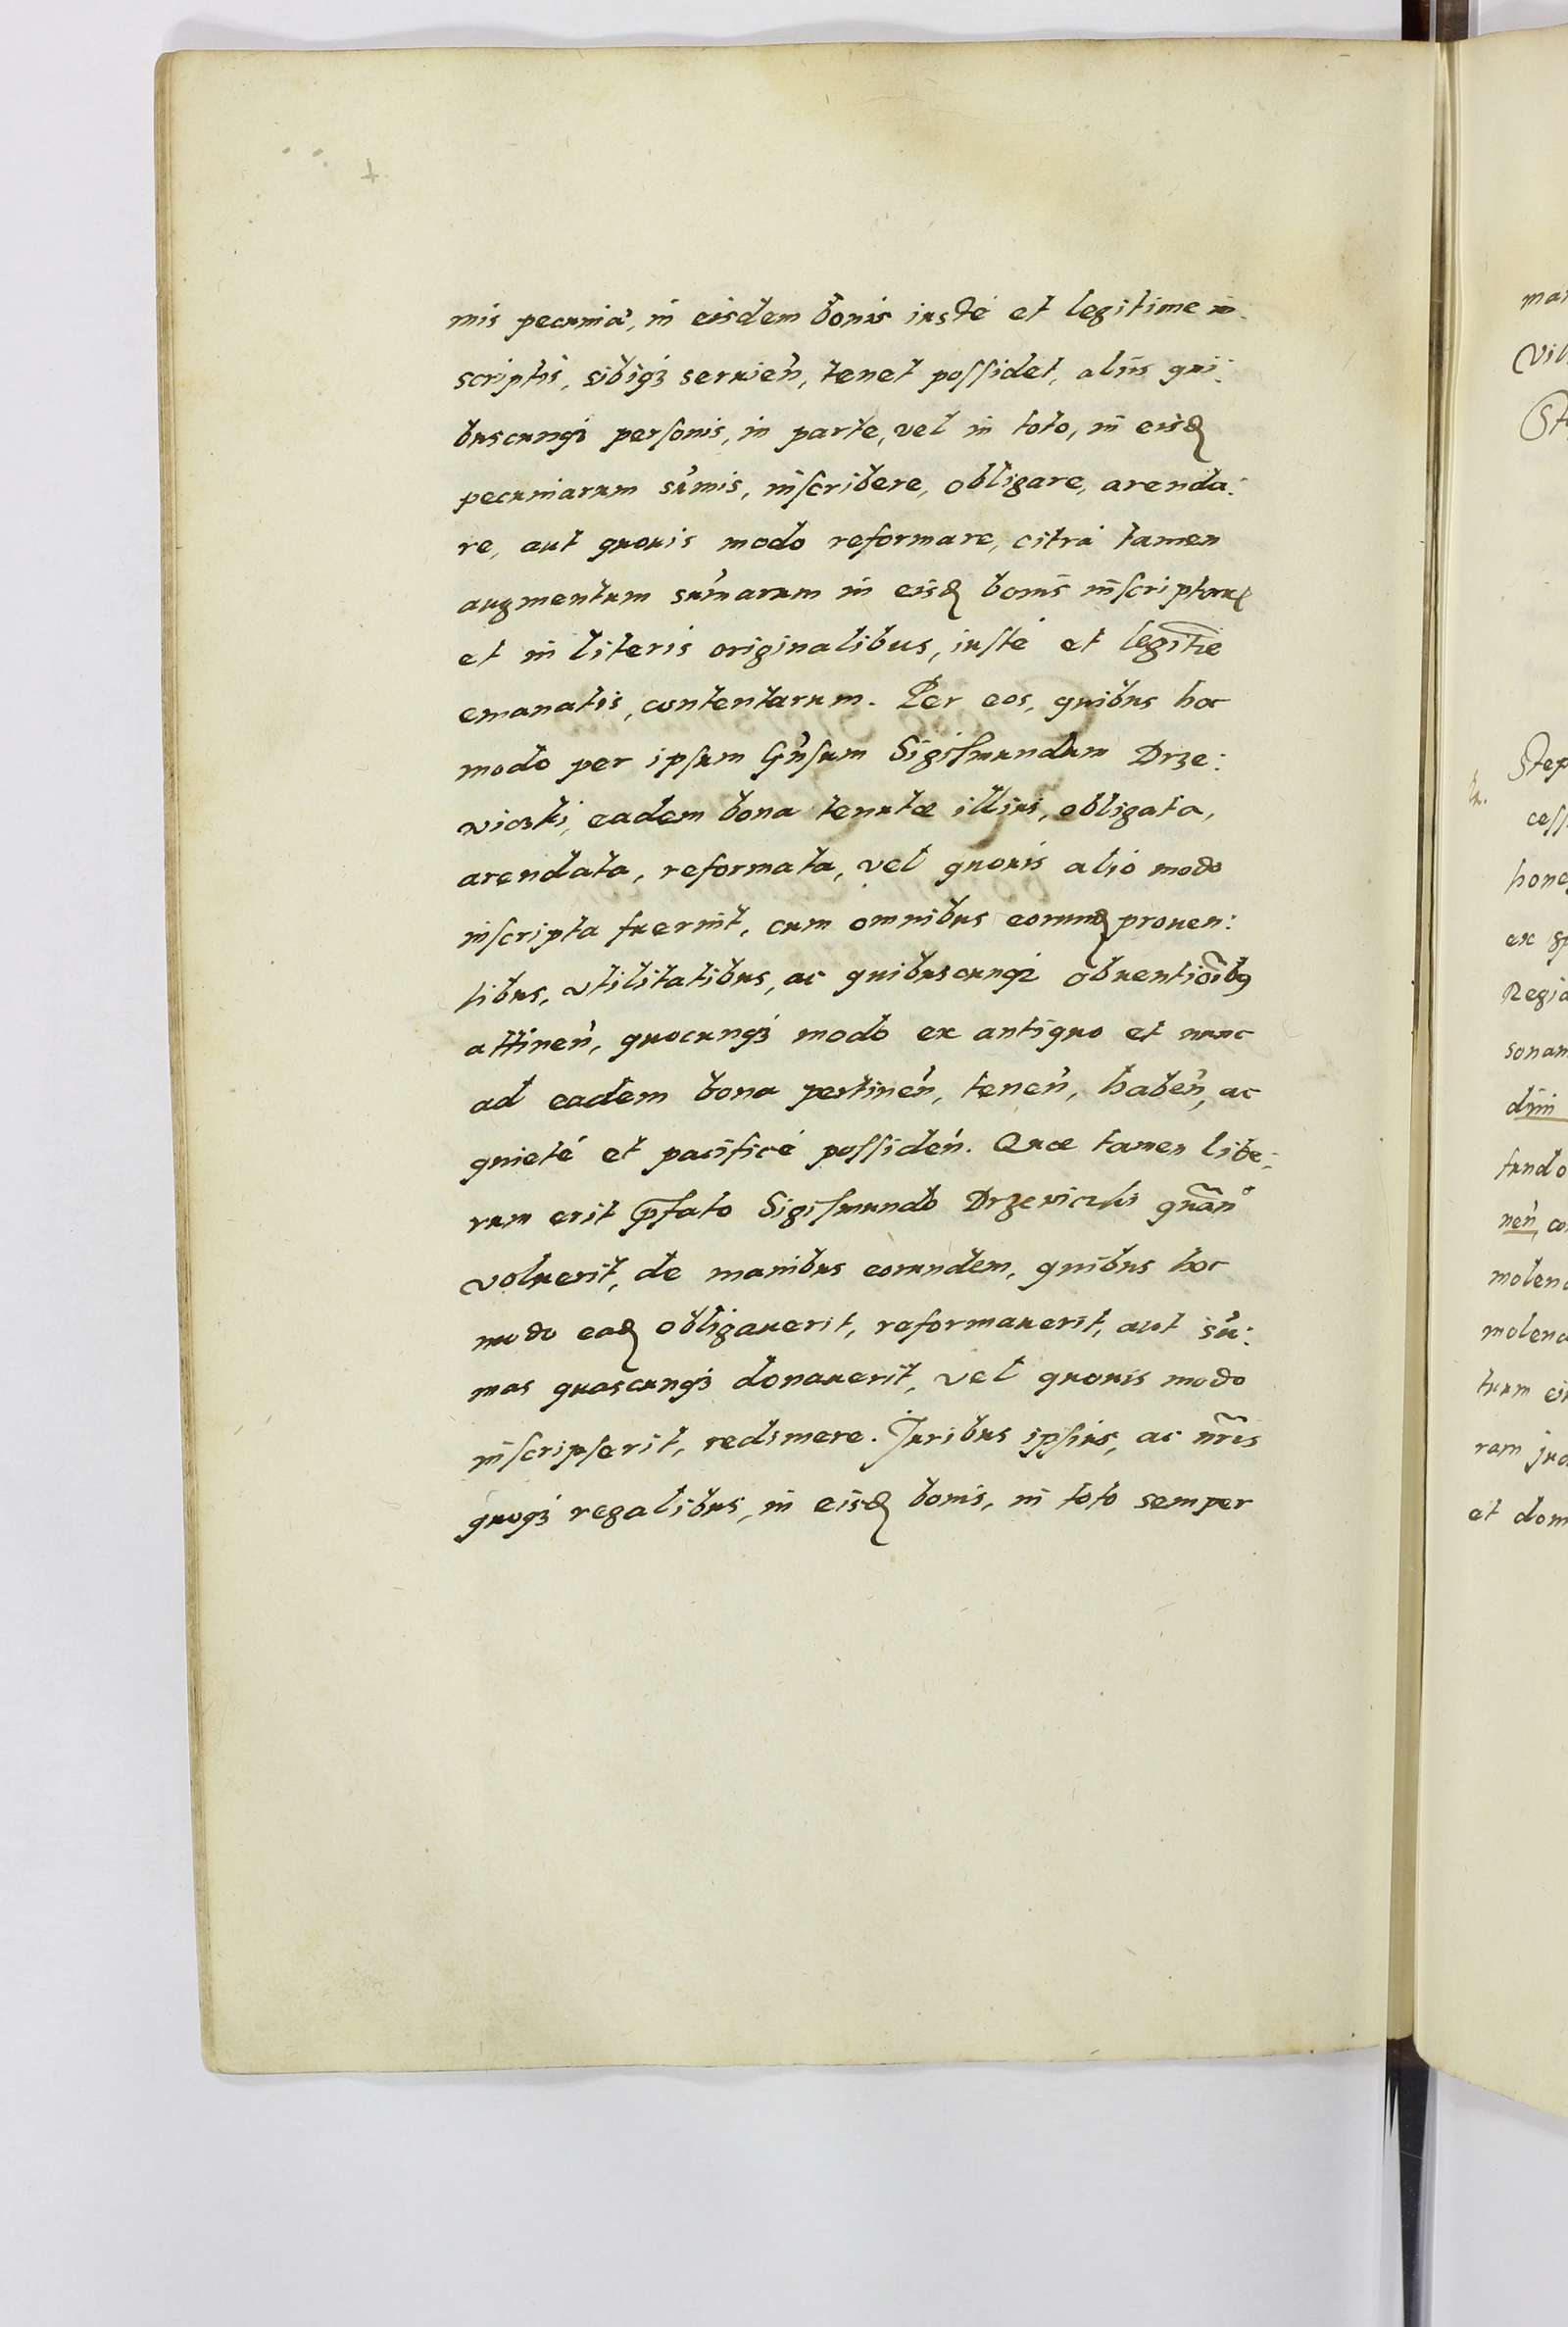 mis pecunia, in eisdem bonis iusté et legitime in-
scriptis, sibiq3 seruien̄, tenet possidet, aliis qui:
buscunq3 personis, in parte, vel in toto, in eisd
pecuniarum sūmis, inscribere, obligare, arenda:
re, aut quouis modo reformare, citrá tamen
augmentum sūmarum in eisd bonis inscriptaru
et in literis originalibus, iusté et legitīe
emanatis, contentarum. Per eos, quibus hoc
modo per ipsum Gn̄sum Sigismundum Drze:
viczki, eadem bona tenutæ illius, obligata,
arendata, reformata, vel quouis alio modo
inscripta fuerint, cum omnibus eorund prouen:
tibus, vtilitatibus, ac quibuscunq3 obuentiōib9
attinen̄, quocunq3 modo ex antiquo et nunc
ad eadem bona pertinen̄, tenen̄, haben̄, ac
quieté et pacificé possiden̄. Quæ tamen libe:
rum erit p̄fato Sigismundo Drzewiczki quān°
voluerit, de manibus eorundem, quibus hoc
modo ead obligauerit, reformauerit, aut sū:
mas quascunq3 donauerit, vel quouis modo
inscripserit, redimere. Juribus ipsius, ac nr̄is
quoq3 regalibus, in eisd bonis, in toto semper
Step
cess
hone
Regia
sonam
fundo
nen̄, co
molen
molend
tuum ei
ram
et dom